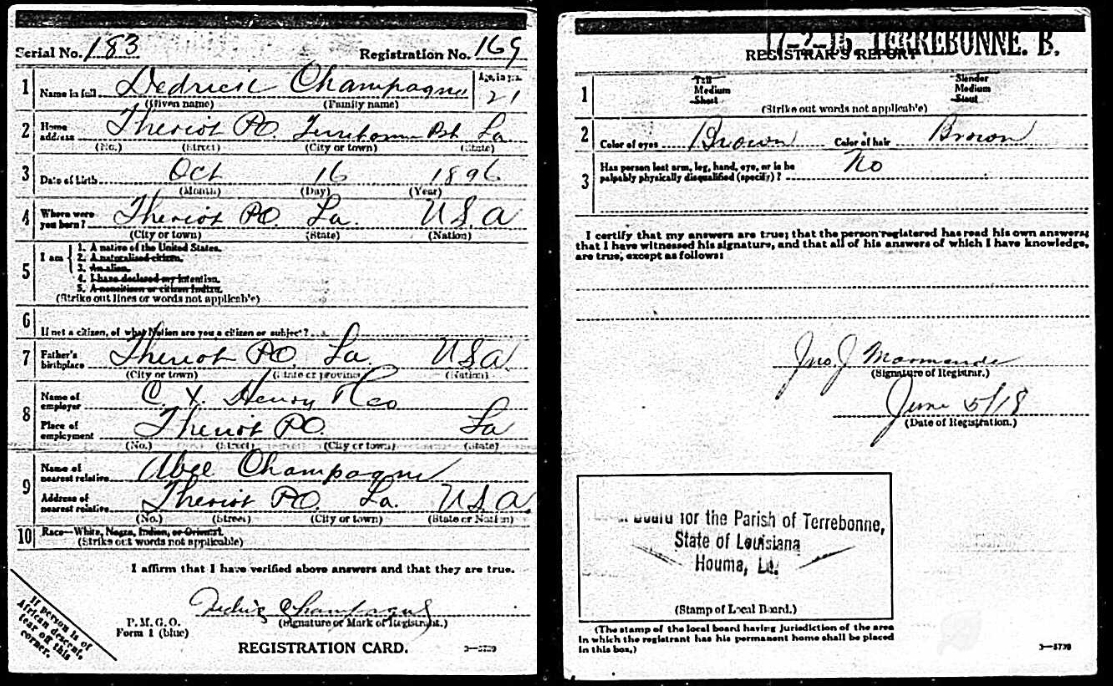 Serial No. 183 Registration No. 169
1 Name in full Dedrick Champagne Age, in yrs. 21
(Given name) (Family name)
2 Home address Theriot PO. Terrebonne Psh La
(No.) (Street) (City or town) (State)
3 Date of birth Oct 16 1896
(Month) (Day) (Year)
4 Where were you born? Theriot PO. La. U.S.A
(City or town) (State) (Nation)
5 I am
1. A native of the United States.
2. A naturalized citizen.
3. An alien.
4. I have declared my intention.
5. A noncitizen or citizen Indian.
(Strike out lines or words not applicable)
6 If not a citizen, of what Nation are you a citizen or subject?
7 Father's birthplace Theriot PO La U.S.A.
(City or town) (State or province) (Nation)
8 Name of employer C. X. Henry & Co
Place of employment Theriot PO. La
(No.) (Street) (City or town) (State)
9 Name of nearest relative Abel Champagne
Address of nearest relative Theriot PO. La. U.S.A.
(No.) (Street) (City or town) (State or Nation)
10 Race—White, Negro, Indian, or Oriental.
(Strike out words not applicable)
I affirm that I have verified above answers and that they are true.
Champagne
P. M. G. O.
Form 1 (blue)
(Signature or Mark of Registrant.)
REGISTRATION CARD.
3—5739
If person is of
African descent,
tear off this
corner.
17-2-15 TERREBONNE. B.
REGISTRAR'S REPORT
1 Tall Medium Short Slender Medium Stout
(Strike out words not applicable)
2 Color of eyes Brown Color of hair Brown
3 Has person lost arm, leg, hand, eye, or is he
palpably physically disqualified (specify)? No
I certify that my answers are true; that the person registered has read his own answers;
that I have witnessed his signature, and that all of his answers of which I have knowledge,
are true, except as follows:
Jno. J. Marmande
(Signature of Registrar.)
June 5/18
(Date of Registration.)
Board for the Parish of Terrebonne,
State of Louisiana
Houma, La.
(Stamp of Local Board.)
(The stamp of the local board having jurisdiction of the area
in which the registrant has his permanent home shall be placed
in this box.)
3—5739